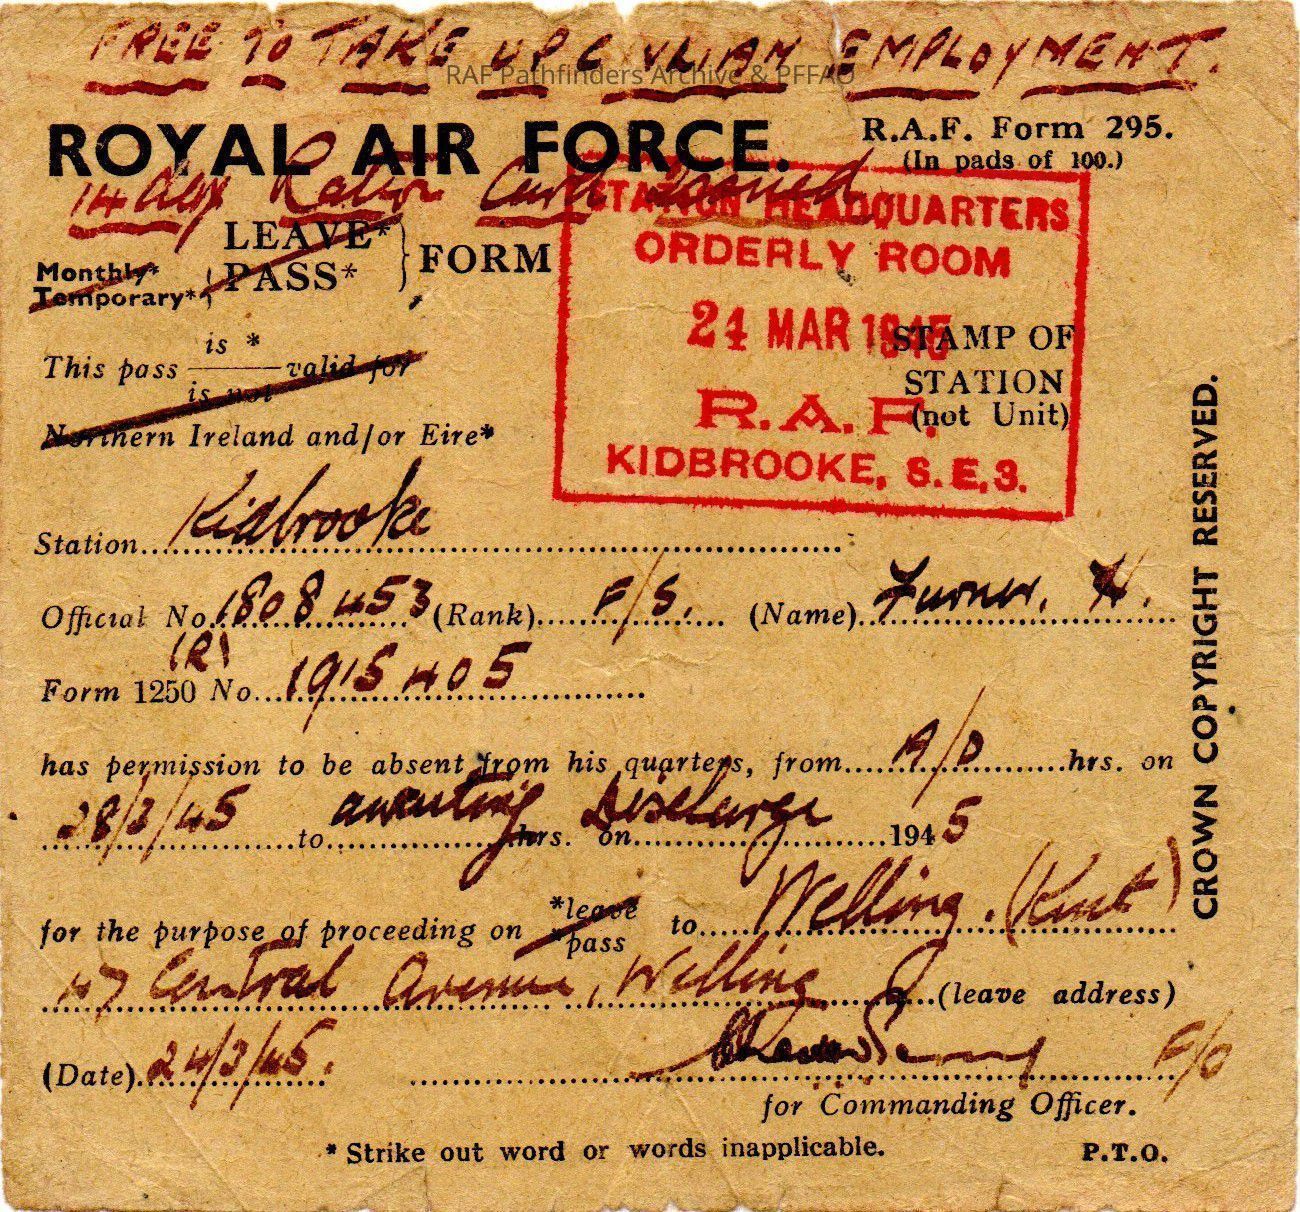 FREE TO TAKE UP CIVILIAN EMPLOYMENT.
RAF Pathfinders Archive & PFFAO
ROYAL AIR FORCE.
R.A.F. Form 295.
(In pads of 100.)
14 day Ration Card Issued
Monthly*
Temporary*
LEAVE*
PASS*
FORM
STATION HEADQUARTERS
ORDERLY ROOM
24 MAR 1945
R.A.F.
KIDBROOKE, S.E.3.
STAMP OF
STATION
(not Unit)
This pass is * valid for
is not
Northern Ireland and/or Eire*
Station Kidbrooke
Official No. 1808453 (Rank) F/S. (Name) Turner. H.
(R)
Form 1250 No. 1915405
has permission to be absent from his quarters, from A/D hrs. on
28/3/45 to awaiting hrs. on Discharge 1945
for the purpose of proceeding on *leave *pass to Welling. (Kent)
47 Central Avenue, Welling (leave address)
(Date) 24/3/45. F/O
for Commanding Officer.
* Strike out word or words inapplicable.
P.T.O.
CROWN COPYRIGHT RESERVED.